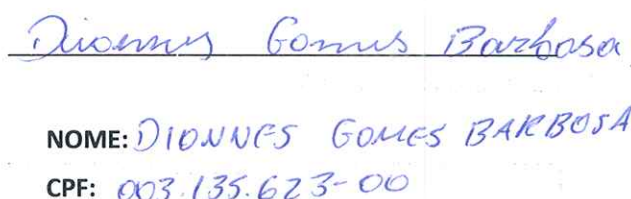 Dionnes Gomes Barbosa
NOME: DIONNES GOMES BARBOSA
CPF: 003.135.623-00